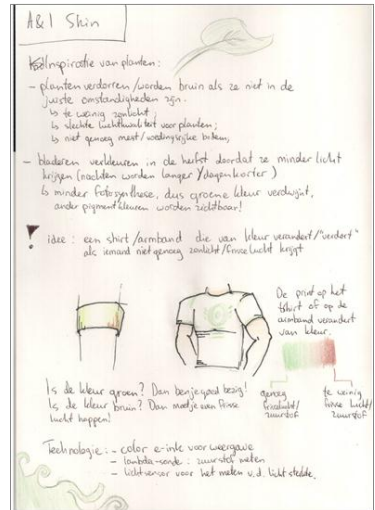 A&I Skin
Inspiratie van planten:
- planten verdorren/worden bruin als ze niet in de
juiste omstandigheden zijn.
↳ te weinig zonlicht
↳ slechte luchtkwaliteit voor planten;
↳ niet genoeg mest/voedingsrijke bodem;
- bladeren verkleuren in de herfst doordat ze minder licht
krijgen (nachten worden langer / dagen korter)
↳ minder fotosynthese, dus groene kleur verdwijnt,
ander pigmentkleuren worden zichtbaar!
! idee: een shirt/armband die van kleur verandert/"verdort"
als iemand niet genoeg zonlicht/frisse lucht krijgt
De print op het
tshirt of op de
armband verandert
van kleur.
genoeg
frisse lucht/
zuurstof
te weinig
frisse lucht/
zuurstof
Is de kleur groen? Dan ben je goed bezig!
Is de kleur bruin? Dan moet je even frisse
lucht happen!
Technologie: - color e-ink voor weergave
- lambda-sonde: zuurstof meten
- lichtsensor voor het meten v.d. lichtsterkte.